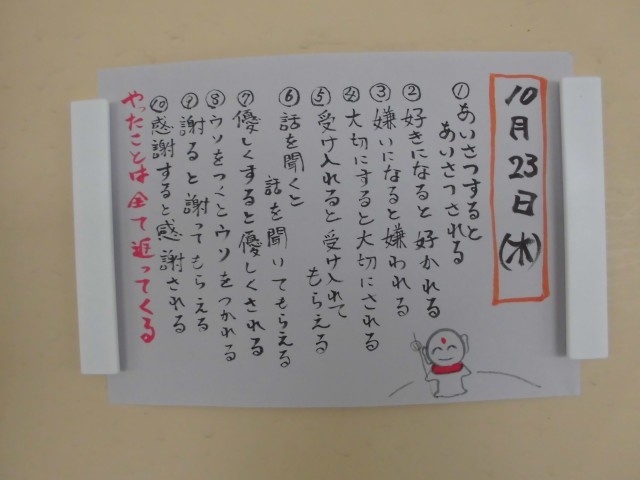 10月23日(木)
①あいさつすると
あいさつされる
②好きになると好かれる
③嫌いになると嫌われる
④大切にすると大切にされる
⑤受け入れると受け入れて
もらえる
⑥話を聞くと
話を聞いてもらえる
⑦優しくすると優しくされる
⑧ウソをつくとウソをつかれる
⑨謝ると謝ってもらえる
⑩感謝すると感謝される
やったことは全て返ってくる